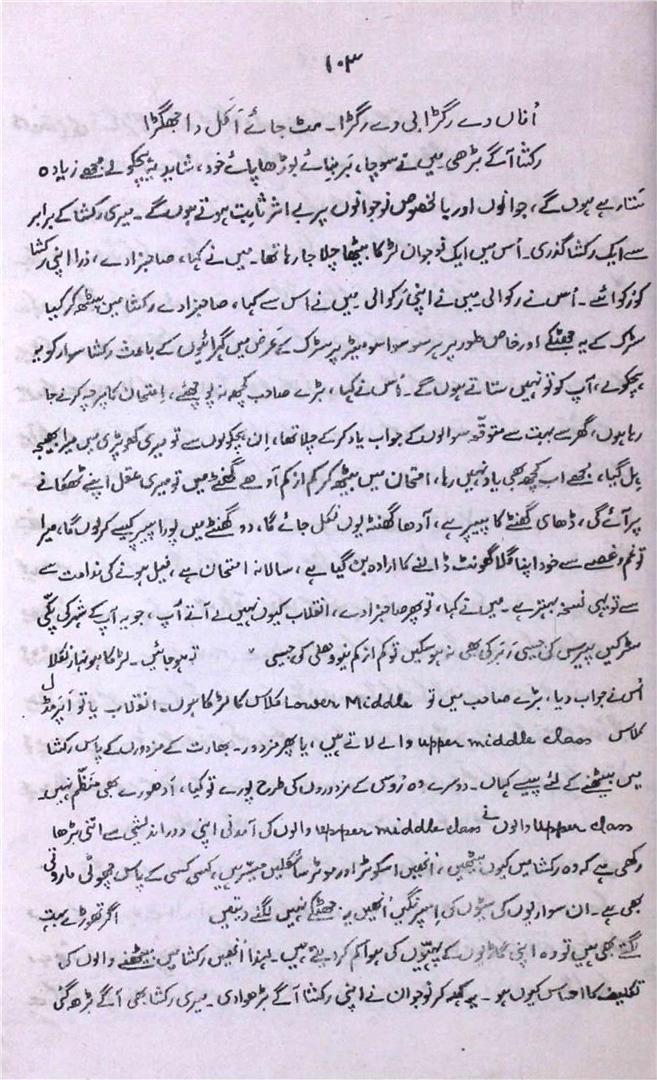 ۱۰۳
اُناں دے رگڑا بی دے رگڑا ۔ مٹ جائے اَکل دا جھگڑا
رکشا آگے بڑھی ۔ میں نے سوچا، بَر بنائے بوڑھاپائے خود، شاید یہ ہچکولے مجھے زیادہ
ستا رہے ہوں گے، جوانوں اور بالخصوص نوجوانوں پر بے اثر ثابت ہوتے ہوں گے ۔ میری رکشا کے برابر
سے ایک رکشا گذری ۔ اُس میں ایک نوجوان لڑکا بیٹھا چلا جا رہا تھا ۔ میں نے کہا، صاحبزادے، ذرا اپنی رکشا
کو رُکوائے ۔ اُس نے رکوالی میں نے اپنی رُکوالی ۔ میں نے اس سے کہا، صاحبزادے رکشا میں بیٹھ کر کیا
سڑک کے یہ جھٹکے اور خاص طور پر ہر سو سوا سو میٹر پر سڑک کے عَرض میں گہرائیوں کے باعث رکشا سوار کو یہ
ہچکولے، آپ کو تو نہیں ستاتے ہوں گے ۔ اُس نے کہا، بڑے صاحب کچھ نہ پوچھئے، اِمتحان کا پرچہ کرنے جا
رہا ہوں، گھر سے بہت سے متوقعہ سوالوں کے جواب یاد کر کے چلا تھا، اِن ہچکولوں سے تو میری کھوپڑی میں میرا بھیجہ
ہِل گیا، مجھے اب کچھ بھی یاد نہیں رہا، امتحان میں بیٹھ کر کم از کم آدھے گھنٹے میں تو میری عقل اپنے ٹھکانے
پر آئے گی، ڈھائی گھنٹے کا پیپر ہے، آدھا گھنٹہ یوں نکل جائے گا، دو گھنٹے میں پورا پیپر کیسے کر لوں گا، میرا
تو غم و غصے سے خود اپنا گلا گھونٹ ڈالنے کا ارادہ بن گیا ہے، سالانہ امتحان ہے، فیل ہونے کی ندامت سے
سے تو یہی نسخہ بہتر ہے ۔ میں نے کہا، تو پھر صاحبزادے، انقلاب کیوں نہیں لے آتے آپ، جو یہ آپ کے شہر کی پکّی
سڑکیں پیرس کی جیسی رَبَر کی بھی نہ ہو سکیں تو کم از کم نیو دھلی کی جیسی تو ہو جائیں ۔ لڑکا ہونہار نکلا
اُس نے جواب دیا، بڑے صاحب میں تو Lower Middle کلاس کا لڑکا ہوں ۔ انقلاب یا تو اَپروڈل
کلاس upper middle class والے لاتے ہیں، یا پھر مزدور ۔ بھارت کے مزدوروں کے پاس رکشا
میں بیٹھنے کے لئے پیسے کہاں ۔ دوسرے وہ رُوس کے مزدوروں کی طرح پورے تو کیا، اَدھورے بھی منظّم نہیں ۔
upper class والوں نے upper middle class والوں کی آمدنی اپنی دور اندیشی سے اتنی بڑھا
رکھی ہے کہ وہ رکشا میں کیوں بیٹھیں، انھیں اسکوٹر اور موٹر سائکلیں میسّر ہیں، کسی کسی کے پاس چھوٹی ماروتی
بھی ہے ۔ ان سواریوں کی سیٹوں کی اسپرنگیں انھیں یہ جھٹکے نہیں لگنے دیتیں اگر تھوڑے بہت
لگتے بھی ہیں تو وہ اپنی گاڑیوں کے پہیّوں کی ہوا کم کر دیتے ہیں ۔ لہذا اُنھیں رکشا میں بیٹھنے والوں کی
تکلیف کا احساس کیوں ہو ۔ یہ کہہ کر نوجوان نے اپنی رکشا آگے بڑھوا دی ۔ میری رکشا بھی آگے بڑھ گئی